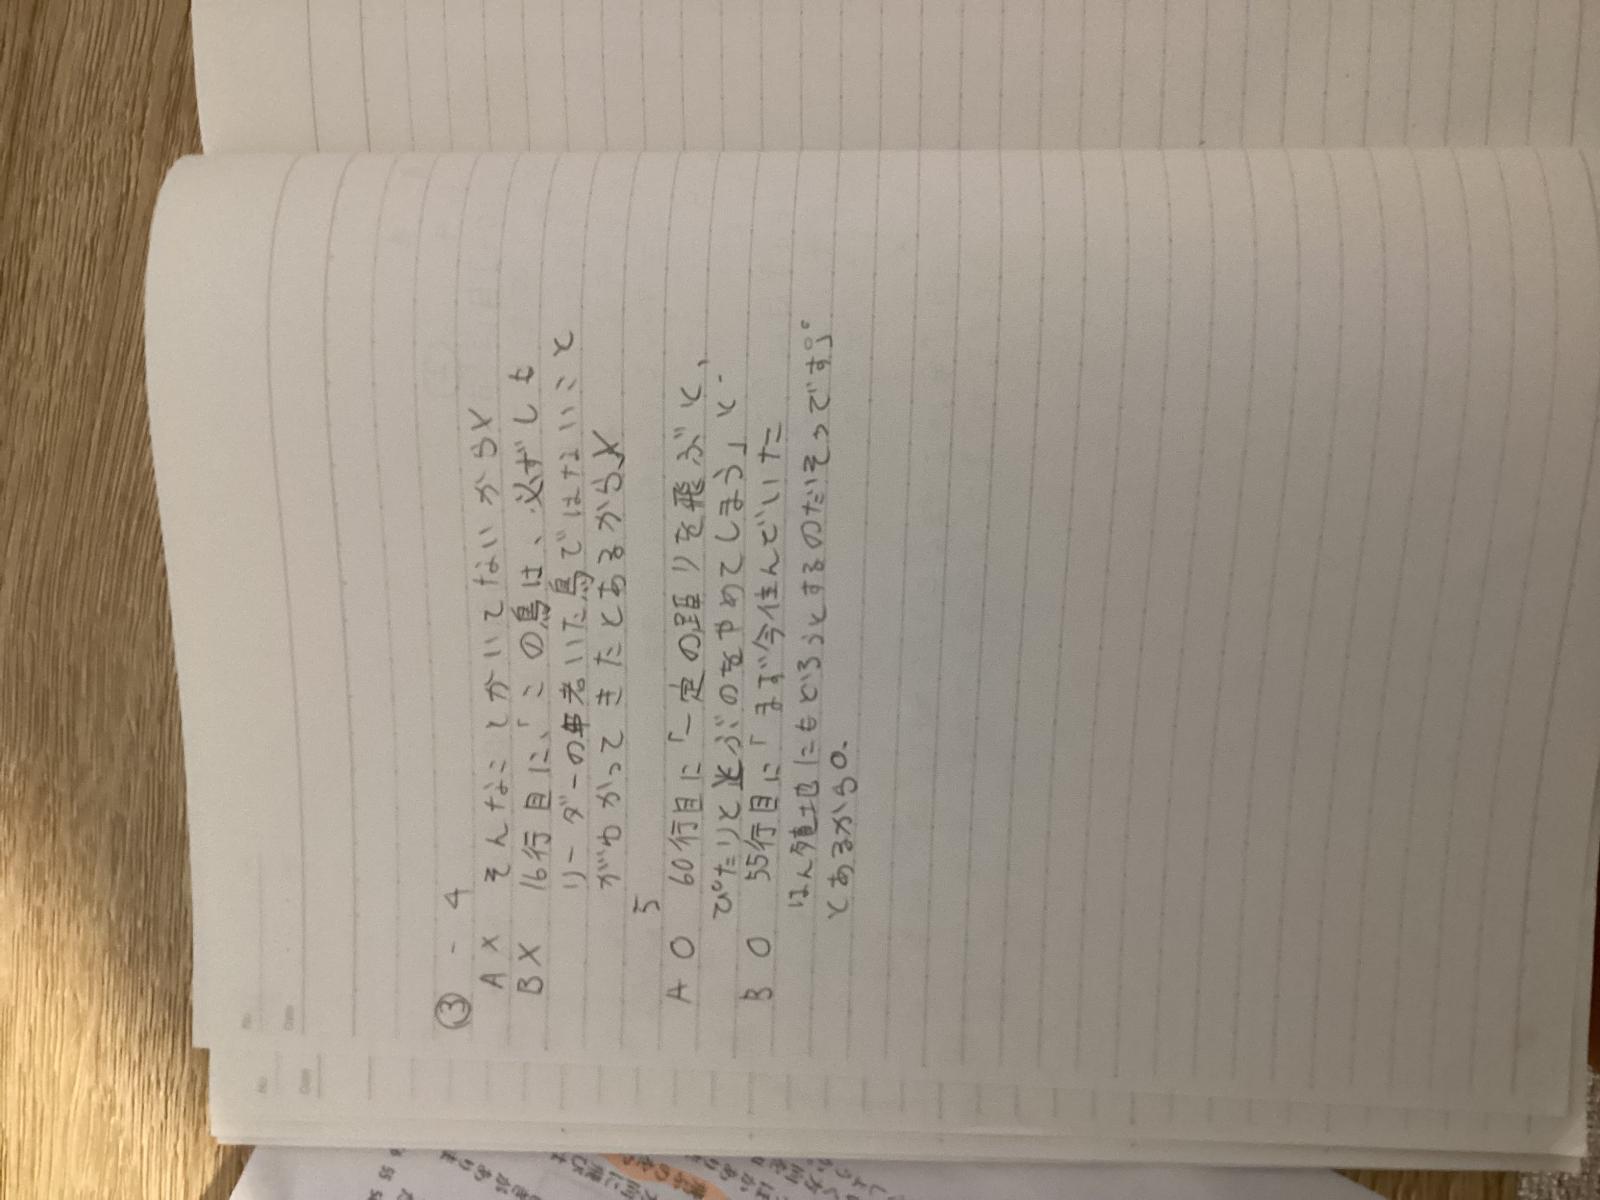 ③ - 4
A × そんなことかいてないから×
B× 16行目に、「この鳥は、必ずしも
リーダーの年老いた鳥ではないこと
がわかってきたとあるから×
5
A ○ 60行目に「一定の距りを飛ぶと、
ぴたりと飛ぶのをやめてしまう」と.
B ○ 55行目に「まず今住んでいた
はん殖地にもどろうとするのだそうです。」
とあるから○.
No.
Date
No.
Date